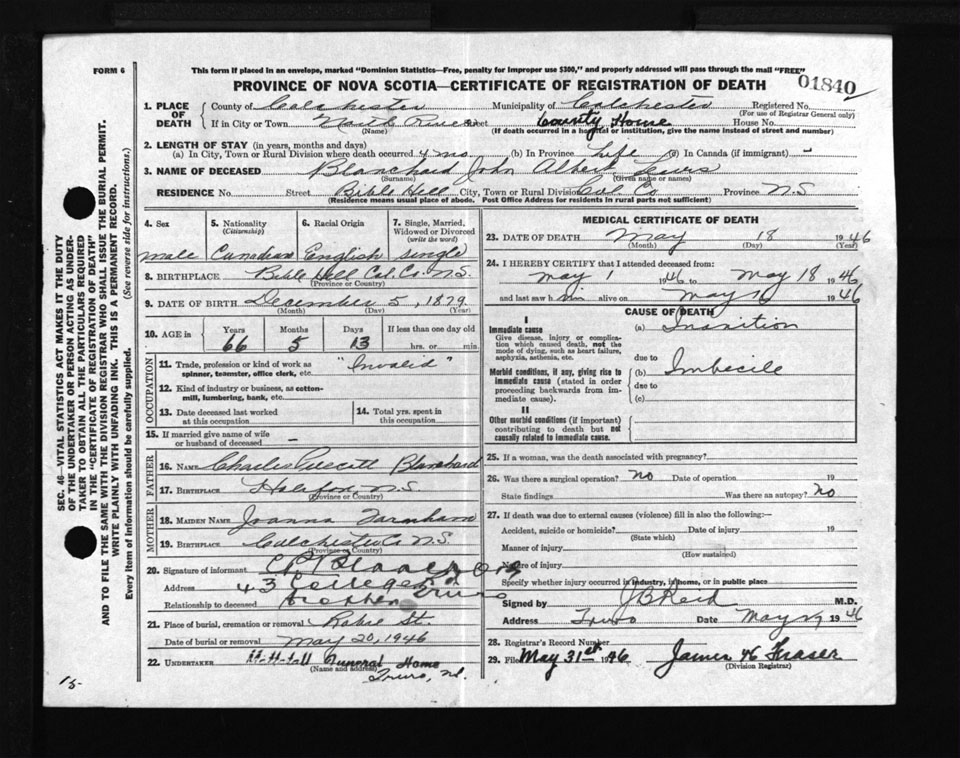 FORM 6
This form if placed in an envelope, marked "Dominion Statistics—Free, penalty for improper use $300," and properly addressed will pass through the mail "FREE"
PROVINCE OF NOVA SCOTIA—CERTIFICATE OF REGISTRATION OF DEATH
01840
SEC. 46—VITAL STATISTICS ACT MAKES IT THE DUTY
OF THE UNDERTAKER OR PERSON ACTING AS UNDER-
TAKER TO OBTAIN ALL THE PARTICULARS REQUIRED
IN THE "CERTIFICATE OF REGISTRATION OF DEATH"
AND TO FILE THE SAME WITH THE DIVISION REGISTRAR WHO SHALL ISSUE THE BURIAL PERMIT.
WRITE PLAINLY WITH UNFADING INK. THIS IS A PERMANENT RECORD.
Every item of information should be carefully supplied. (See reverse side for instructions.)
1. PLACE OF DEATH
County of Colchester Municipality of Colchester Registered No.
(For use of Registrar General only)
If in City or Town North River Street County Home House No.
(Name) (If death occurred in a hospital or institution, give the name instead of street and number)
2. LENGTH OF STAY (in years, months and days)
(a) In City, Town or Rural Division where death occurred 4 mo (b) In Province Life (c) In Canada (if immigrant) -
3. NAME OF DECEASED Blanchard John Albert Lewis
(Surname) (Given name or names)
RESIDENCE No. Street Bible Hill City, Town or Rural Division Col. Co Province N.S
(Residence means usual place of abode. Post Office Address for residents in rural parts not sufficient)
4. Sex 5. Nationality (Citizenship) 6. Racial Origin 7. Single, Married, Widowed or Divorced (write the word)
male Canadian English single
8. BIRTHPLACE Bible Hill Col. Co. N.S.
(Province or Country)
9. DATE OF BIRTH December 5, 1879
(Month) (Day) (Year)
10. AGE in Years Months Days If less than one day old
66 5 13 hrs. or min.
OCCUPATION
11. Trade, profession or kind of work as spinner, teamster, office clerk, etc. "Invalid"
12. Kind of industry or business, as cotton-mill, lumbering, bank, etc.
13. Date deceased last worked at this occupation
14. Total yrs. spent in this occupation
15. If married give name of wife or husband of deceased -
FATHER
16. NAME Charles Blanchard
17. BIRTHPLACE Halifax N.S.
(Province or Country)
MOTHER
18. MAIDEN NAME Joanna Farnham
19. BIRTHPLACE Colchester Co N.S.
(Province or Country)
20. Signature of informant
Address 43 Truro
Relationship to deceased brother
21. Place of burial, cremation or removal Robie St.
Date of burial or removal May 20, 1946
22. UNDERTAKER Funeral Home
(Name and address)
Truro,
15-
MEDICAL CERTIFICATE OF DEATH
23. DATE OF DEATH May 18 1946
(Month) (Day) (Year)
24. I HEREBY CERTIFY that I attended deceased from:
May 1 1946 May 18 1946
and last saw him alive on May 1946
CAUSE OF DEATH
I
Immediate cause
Give disease, injury or complication which caused death, not the mode of dying, such as heart failure, asphyxia, asthenia, etc.
(a) Inanition
due to
Morbid conditions, if any, giving rise to immediate cause (stated in order proceeding backwards from immediate cause).
(b) Imbecile
due to
(c)
II
Other morbid conditions (if important) contributing to death but not causally related to immediate cause.
25. If a woman, was the death associated with pregnancy?
26. Was there a surgical operation? no Date of operation 19
State findings Was there an autopsy? no
27. If death was due to external causes (violence) fill in also the following:—
Accident, suicide or homicide? Date of injury 19
(State which)
Manner of injury
(How sustained)
Nature of injury
Specify whether injury occurred in industry, in home, or in public place
Signed by J B Reid M.D.
Address Truro Date May 1946
28. Registrar's Record Number
29. Filed May 31st 1946 James W Fraser
(Division Registrar)